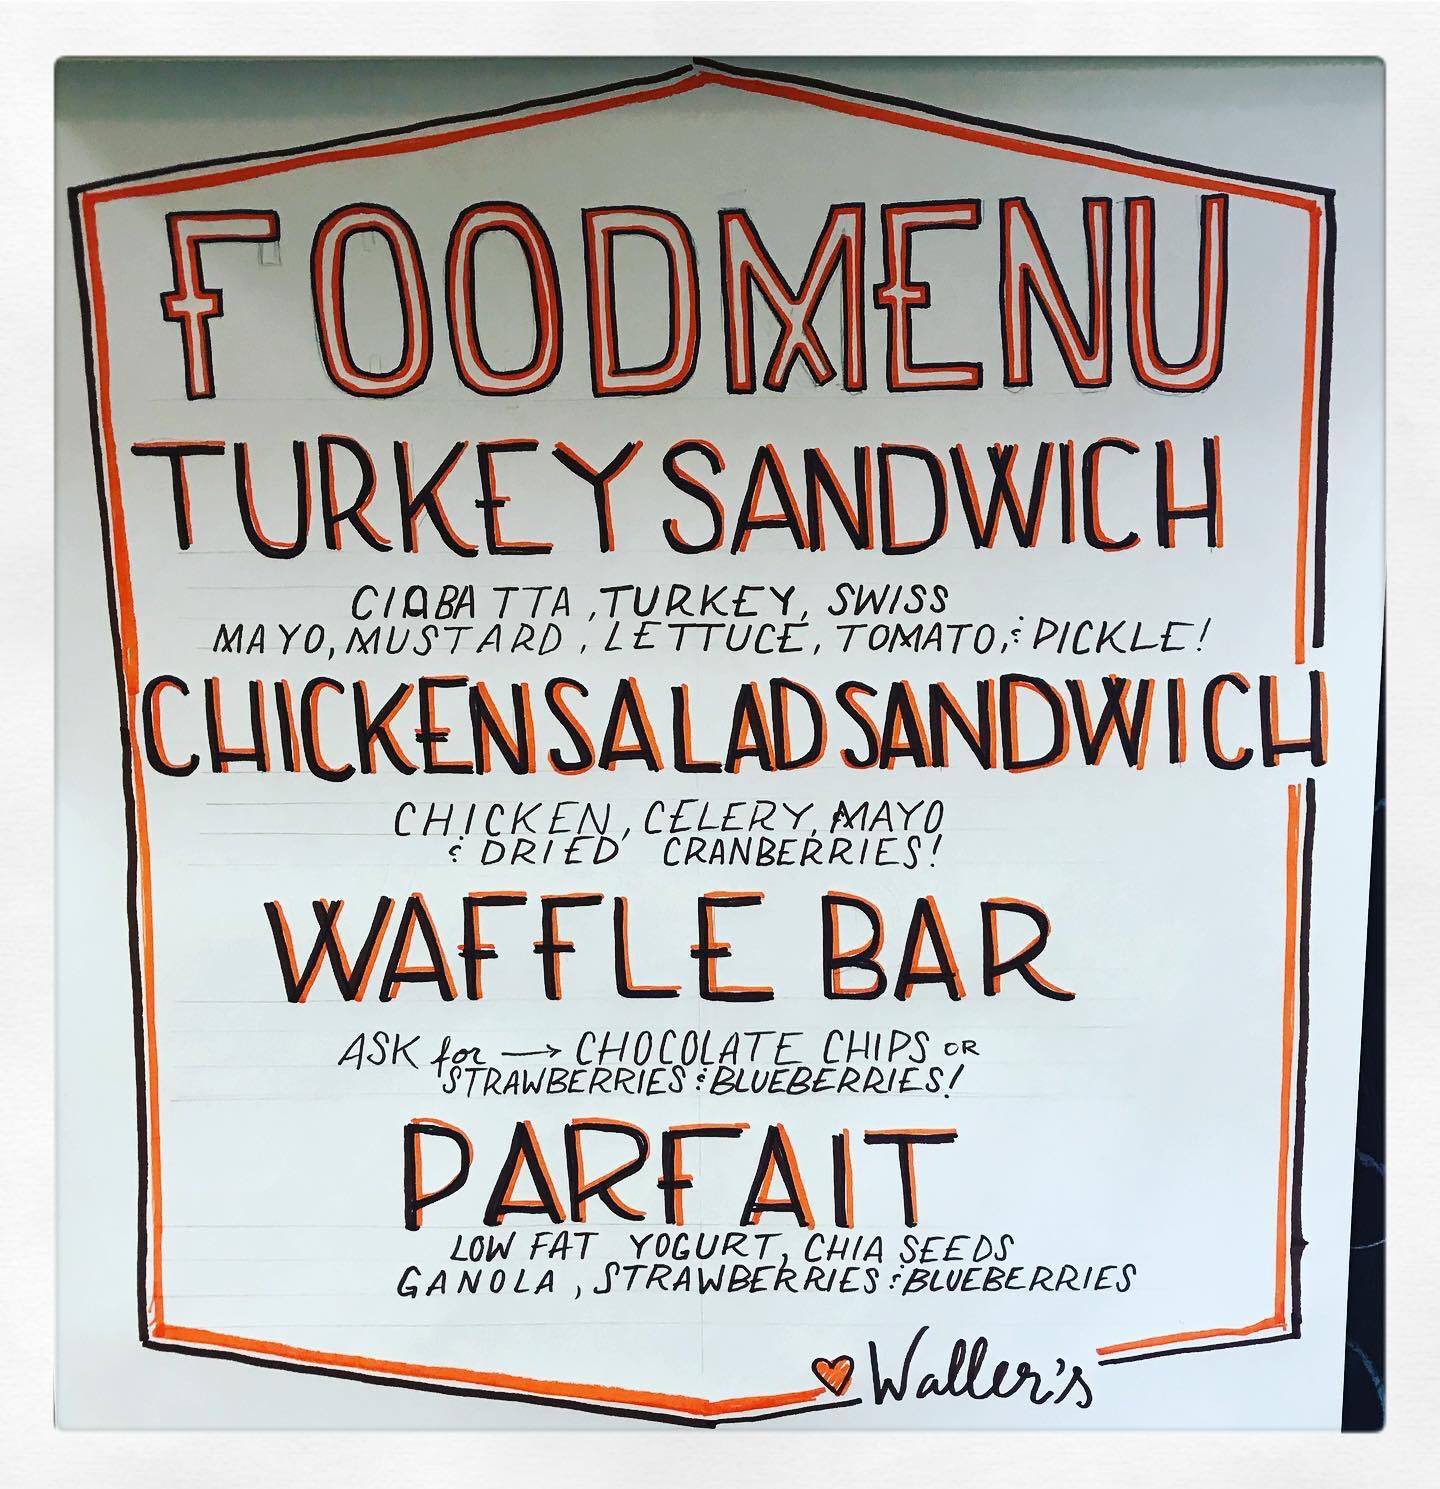 FOOD MENU
TURKEY SANDWICH
CIABATTA, TURKEY, SWISS
MAYO, MUSTARD, LETTUCE, TOMATO, & PICKLE!
CHICKEN SALAD SANDWICH
CHICKEN, CELERY, MAYO
& DRIED CRANBERRIES!
WAFFLE BAR
ASK for → CHOCOLATE CHIPS OR
STRAWBERRIES & BLUEBERRIES!
PARFAIT
LOW FAT YOGURT, CHIA SEEDS
GANOLA, STRAWBERRIES & BLUEBERRIES
Waller's